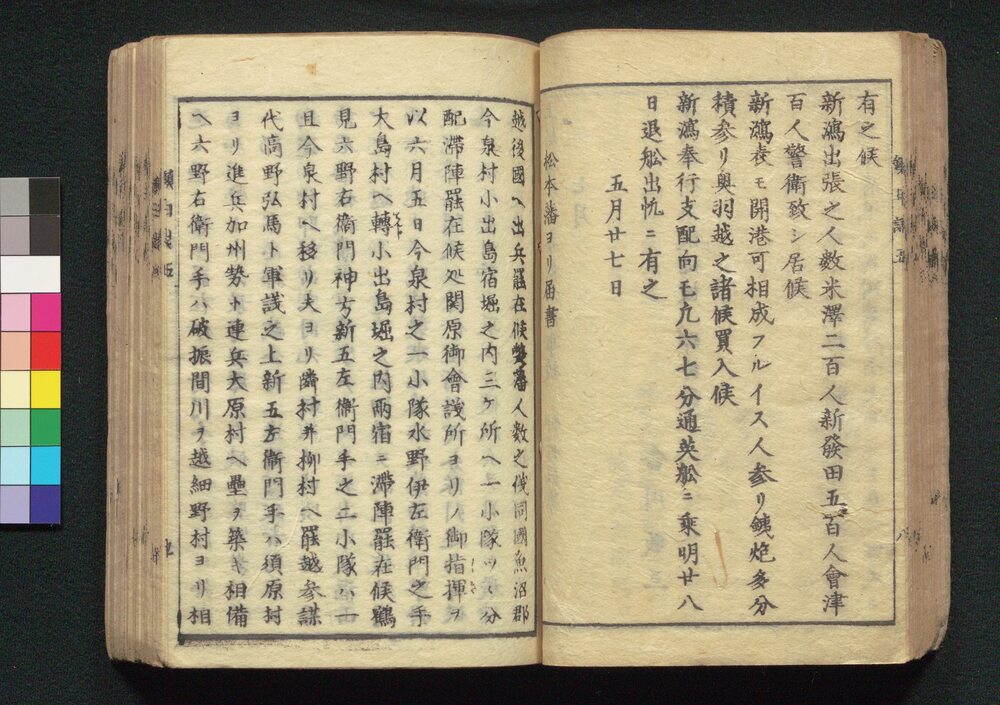 有之候
新潟出張之人數米澤二百人新發田五百人會津
百人警衛致シ居候
新潟表モ開港可相成フルイス人参リ銕炮多分
積参リ奥羽越之諸候買入候
新潟奉行支配向モ九六七分通英舩ニ乗明廿八
日退舩出帆ニ有之
五月廿七日
松本藩ヨリ届書
越後國ヘ出兵罷在候弊藩人數之儀同國魚沼郡
今泉村小出島宿堀之内三ケ所ヘ一小隊ツヽ分
配滞陣罷在候処関原御會議所ヨリノ御指揮ヲ
以六月五日今泉村之一小隊水野伊左衛門之手
大島村ヘ轉小出島堀之内兩宿ニ滞陣罷在候鶴
見六野右衛門神方新五左衛門手之二小隊ハ一
旦今泉村ヘ移リ夫ヨリ隣村井柳村ヘ罷越参謀
代高野弘馬ト軍議之上新五左衛門手ハ須原村
ヨリ進兵加州勢ト連兵大原村ヘ壘ヲ築キ相備
ヘ六野右衛門手ハ破振間川ヲ越細野村ヨリ相